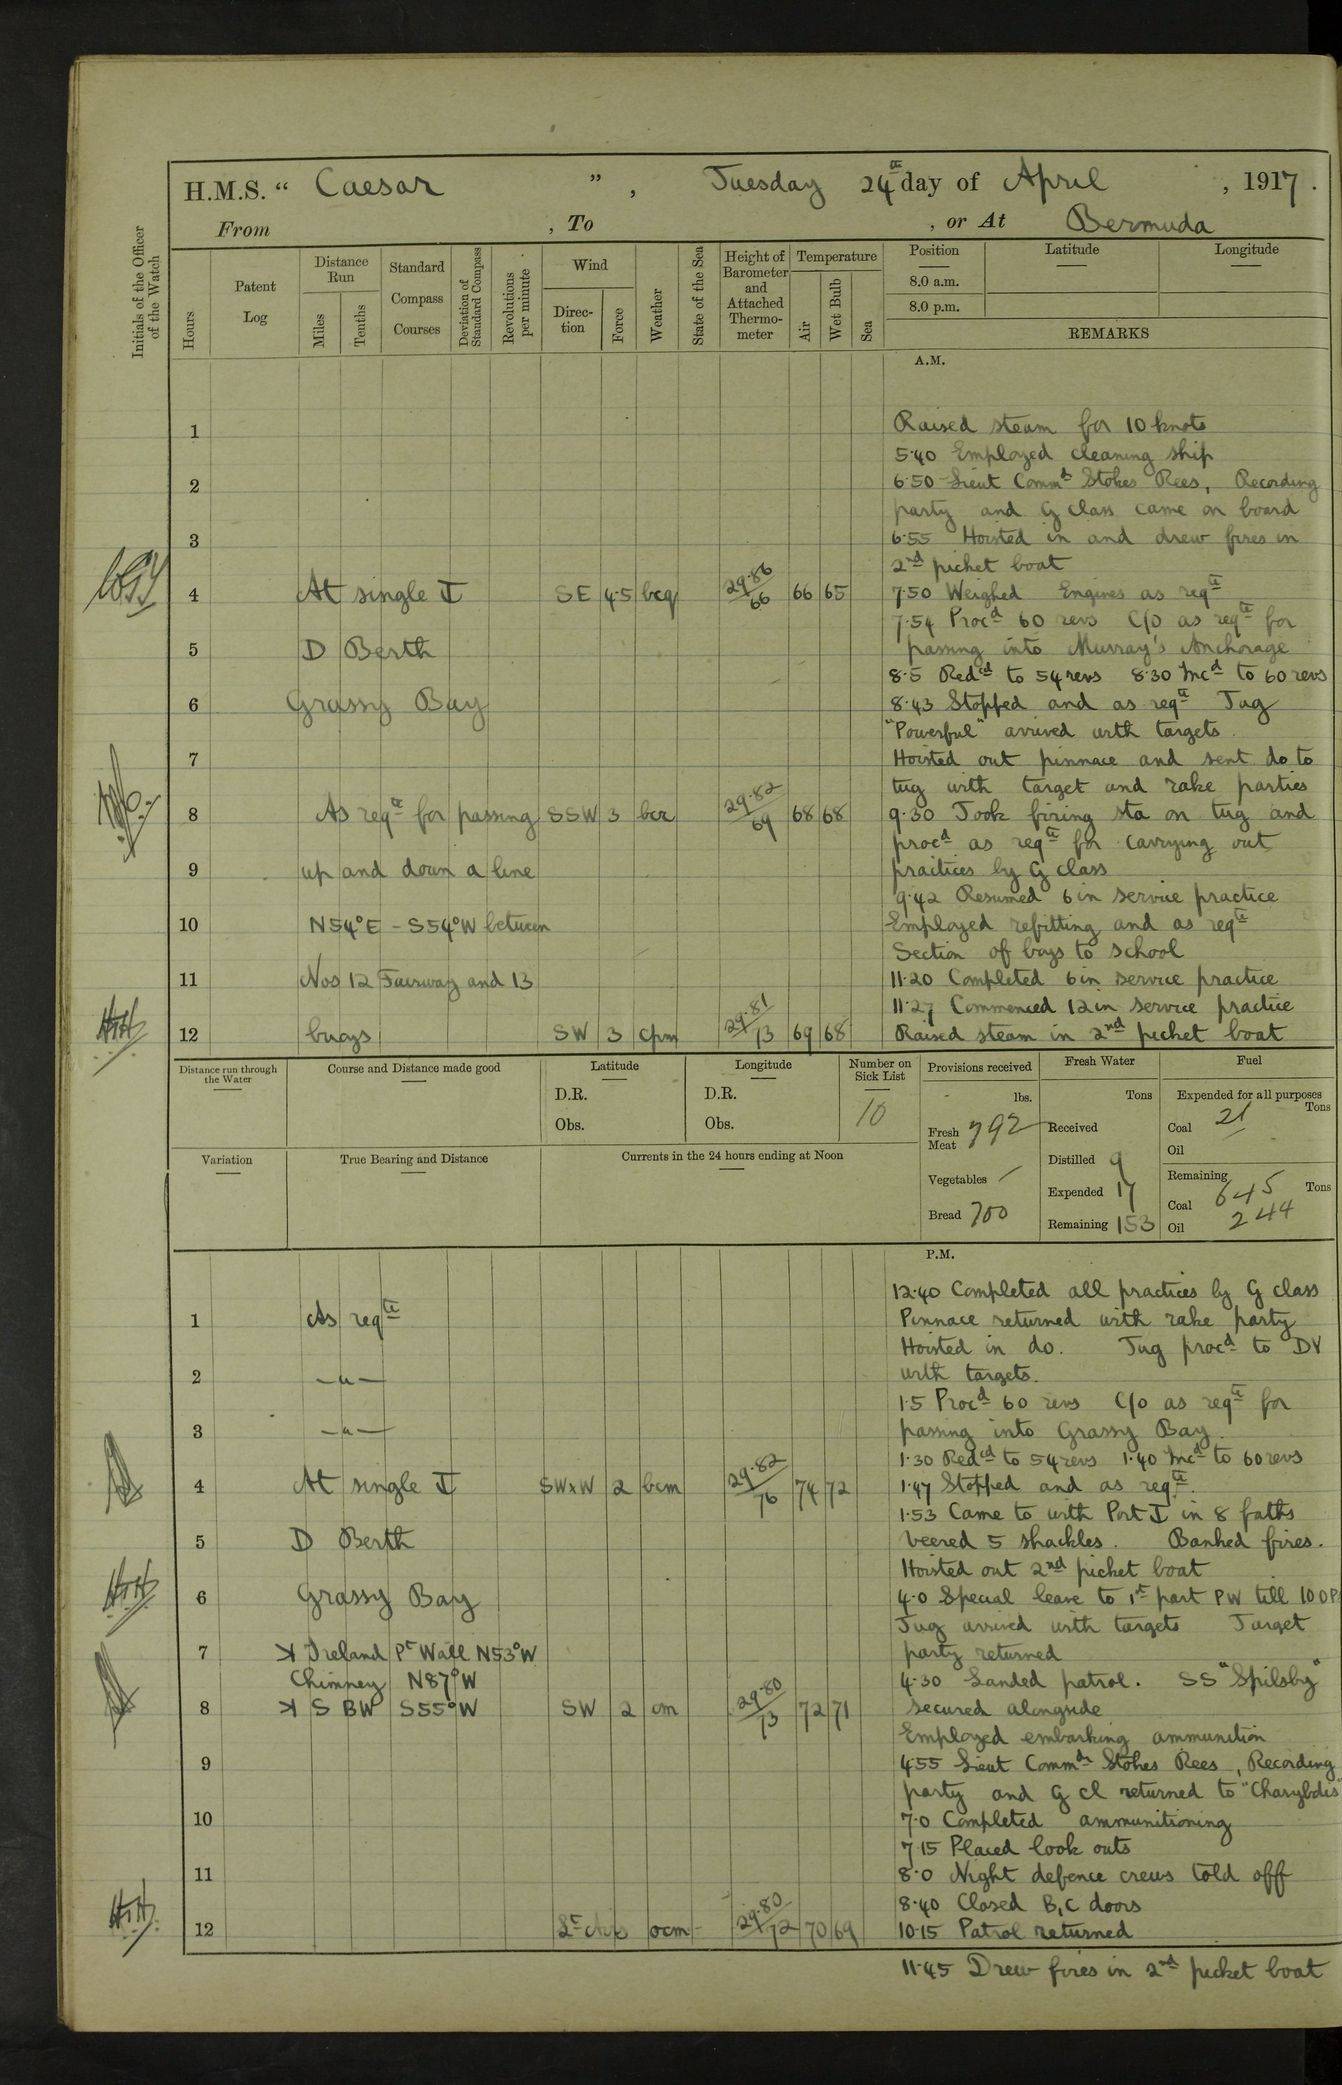 H.M.S. “ Caesar ” , Tuesday 24th day of April , 1917 .
From , To , or At Bermuda
Initials of the Officer of the Watch
Hours
Patent Log
Distance Run
Miles
Tenths
Standard Compass Courses
Deviation of Standard Compass
Revolutions per minute
Wind
Direc-tion
Force
Weather
State of the Sea
Height of Barometer and Attached Thermo-meter
Temperature
Air
Wet Bulb
Sea
Position
8.0 a.m.
8.0 p.m.
Latitude
Longitude
REMARKS
A.M.
Raised steam for 10 knots
1
5·40 Employed cleaning ship
2 6·50 Lieut Commdr Stokes Rees, Recording
party and G class came on board
3 6·55 Hoisted in and drew fires in
2nd picket boat
4 At single SE 4·5 bcq 29·86 66 66 65 7·50 Weighed Engines as reqte
7·54 Procd 60 revs C/o as reqte for
5 D Berth passing into Murray's Anchorage
8·5 Redcd to 54 revs 8·30 Incd to 60 revs
6 Grassy Bay 8·43 Stopped and as reqte Tug
"Powerful" arrived with targets.
7 Hoisted out pinnace and sent do to
tug with target and rake parties
8 As reqte for passing SSW 3 bcr 29·82 69 68 68 9·30 Took firing sta on tug and
procd as reqte for carrying out
9 up and down a line practices by G class
9·42 Resumed 6 in service practice
10 N54°E - S54°W between Employed refitting and as reqte
Section of boys to school
11 Nos 12 Fairway and 13 11·20 Completed 6 in service practice
11·27 Commenced 12 in service practice
12 buoys SW 3 cpm 29·81 73 69 68 Raised steam in 2nd picket boat
Distance run through the Water
Course and Distance made good
Latitude
D.R.
Obs.
Longitude
D.R.
Obs.
Number on Sick List
10
Provisions received
lbs.
Fresh Meat 792
Vegetables /
Bread 700
Fresh Water
Tons
Received
Distilled 9
Expended 17
Remaining 153
Fuel
Expended for all purposes
Tons
Coal 21
Oil
Remaining
Tons
Coal 645
Oil 244
Variation
True Bearing and Distance
Currents in the 24 hours ending at Noon
P.M.
12·40 Completed all practices by G class
1 As reqte Pinnace returned with rake party
Hoisted in do. Tug procd to DY
2 —"— with targets.
1·5 Procd 60 revs C/o as reqte for
3 —"— passing into Grassy Bay.
1·30 Redcd to 54 revs 1·40 Incd to 60 revs
4 At single SWxW 2 bcm 29·82 76 74 72 1·47 Stopped and as reqte.
1·53 Came to with Port in 8 faths
5 D Berth veered 5 shackles. Banked fires.
Hoisted out 2nd picket boat
6 Grassy Bay 4·0 Special leave to 1st part PW till 10 0 P
Tug arrived with targets Target
7 Ireland Pt Wall N53°W party returned
Chimney N87°W 4·30 Landed patrol. SS "Spilsby"
8 S BW S55°W SW 2 om 29·80 73 72 71 secured alongside
Employed embarking ammunition
9 4·55 Lieut Commdr Stokes Rees, Recording
party and G cl returned to "Charybdis"
10 7·0 Completed ammunitioning
7·15 Placed look outs
11 8·0 Night defence crews told off
8·40 Closed B, C doors
12 Lt Airs ocm 29·80 72 70 69 10·15 Patrol returned
11·45 Drew fires in 2nd picket boat